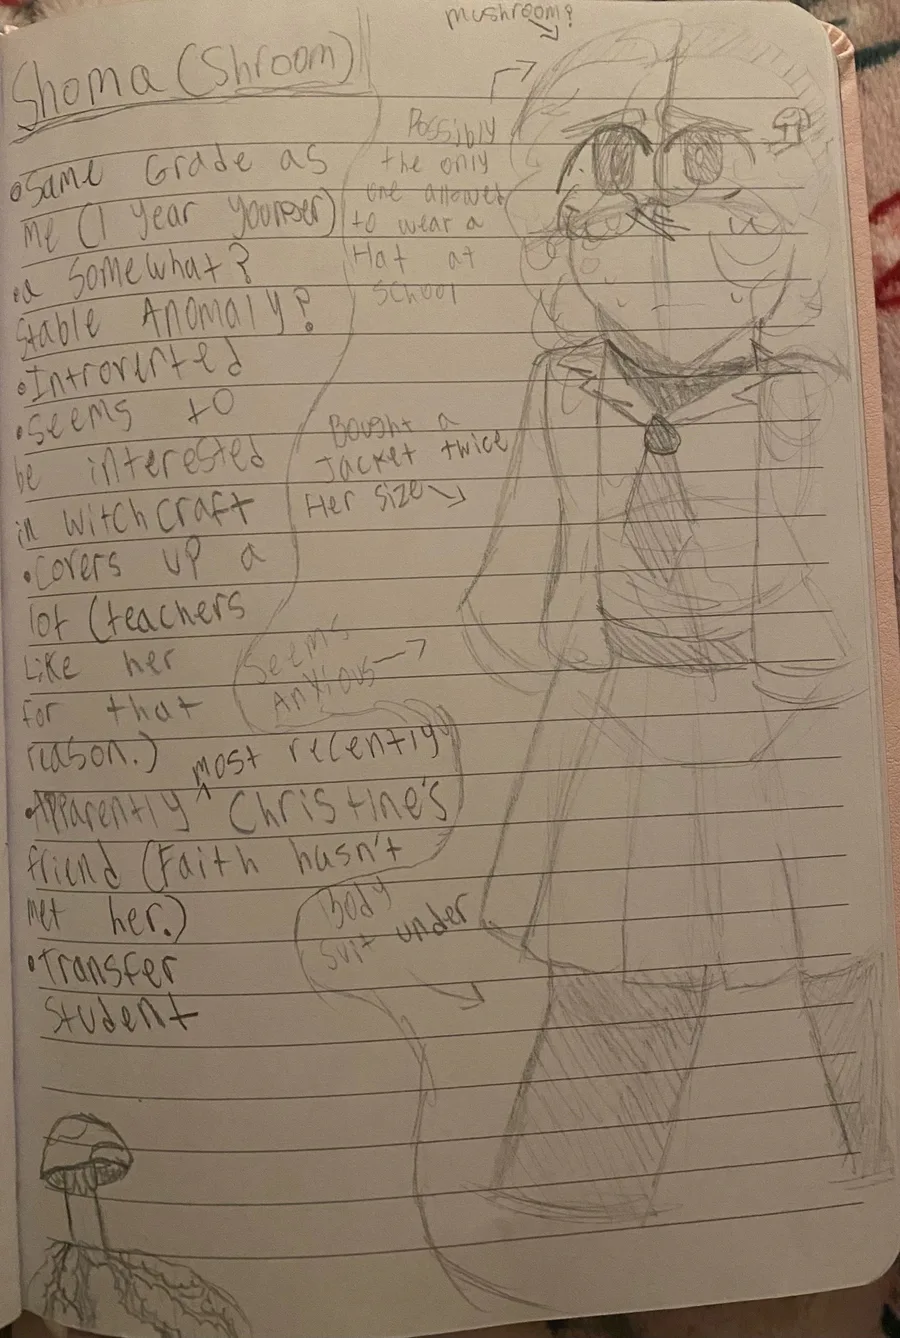 mushroom?
Shoma (Shroom)
•Same Grade as
me (1 year younger)
•a somewhat?
stable Anomaly?
•Introverted
•seems to
be interested
in witchcraft
•Covers up a
lot (teachers
Like her
for that
reason.)
•Apparently ^ most recently
Christine's
friend (Faith hasn't
met her.)
•Transfer
Student
Possibly
the only
one allowed
to wear a
Hat at
School
Bought a
Jacket twice
Her size
Seems
Anxious
Body
suit under